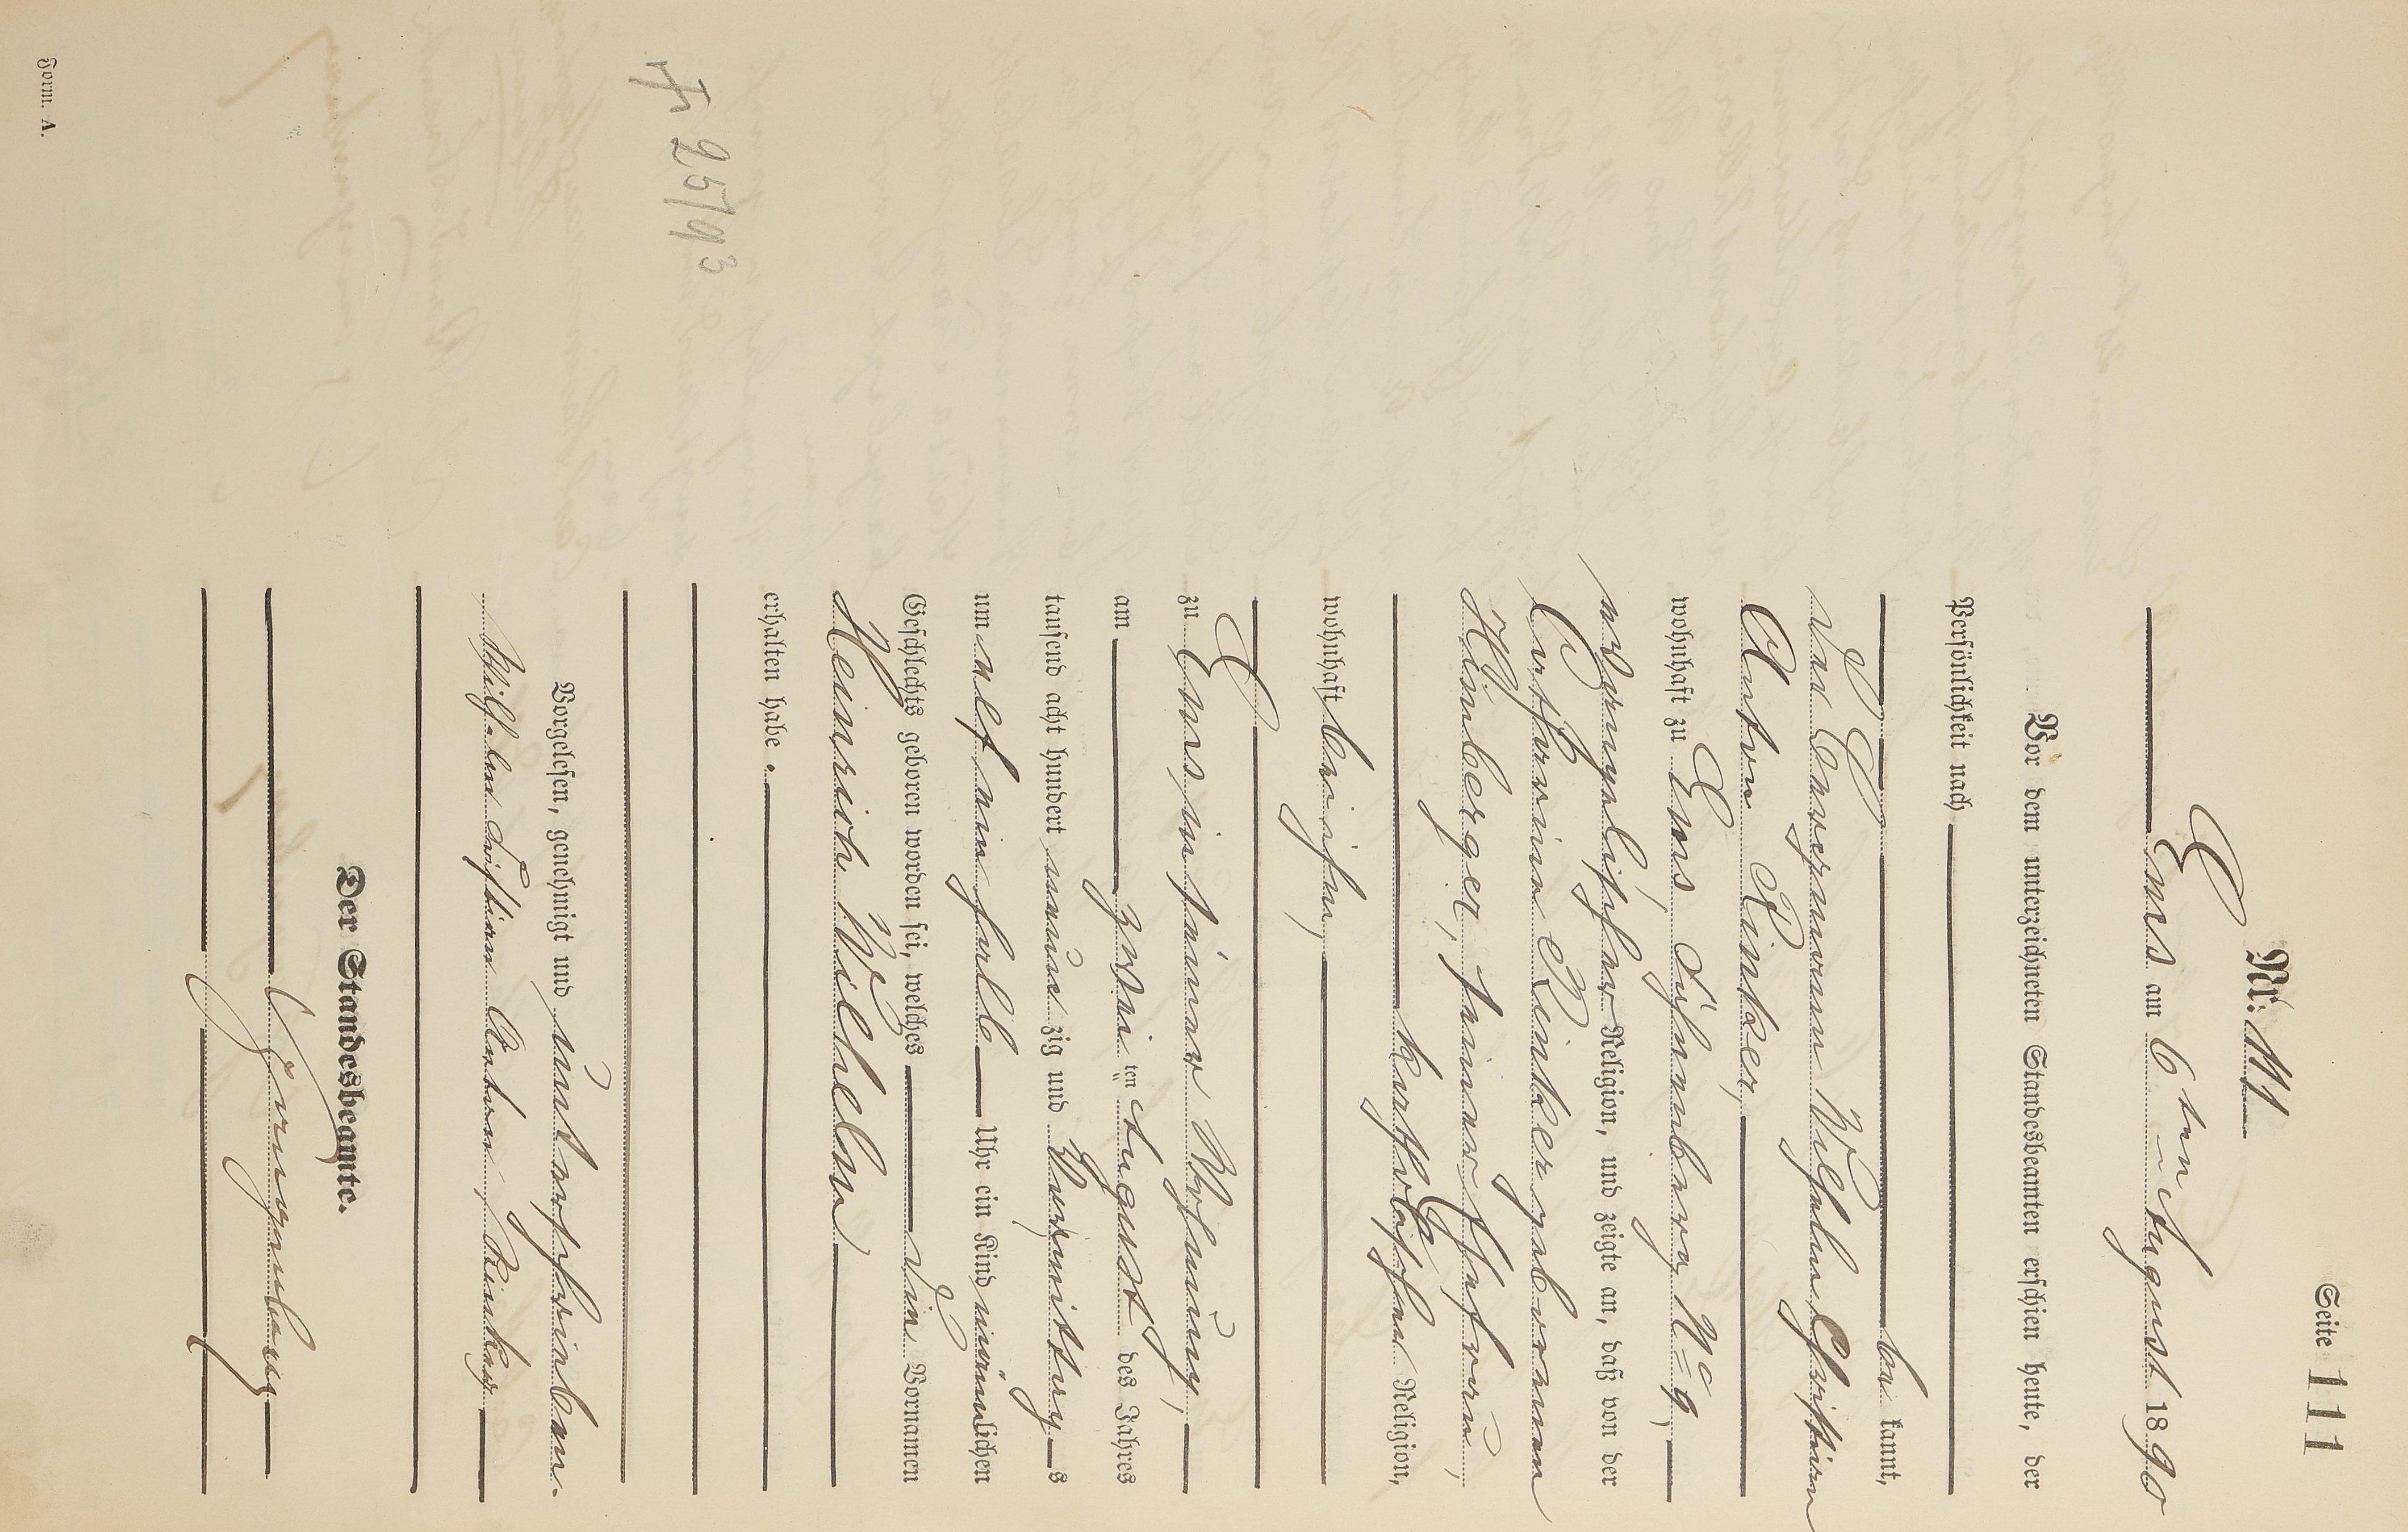 Seite 111
Nr. 111
Ems am 6ten August 1890
Vor dem unterzeichneten Standesbeamten erschien heute, der
Persönlichkeit nach
be kannt,
der Bergmann Wilhelm Christian
Anton Rinker,
wohnhaft zu Ems, Lahnberg No 9,
evangelischer Religion, und zeigte an, daß von der
Catharina Rinker geborenen
Himberger, seiner Ehefrau,
katholischer Religion,
wohnhaft bei ihm,
zu Ems, in seiner Wohnung,
am zweiten August des Jahres
tausend acht hundert neun zig und Vormittags
um elf ein halb Uhr ein Kind männlichen
Geschlechts geboren worden sei, welches die Vornamen
Heinrich Wilhelm
erhalten habe.
Vorgelesen, genehmigt und unterschrieben.
Wilhelm Christian Anton Rinker
Der Standesbeamte.
† 25/93
Form. A.